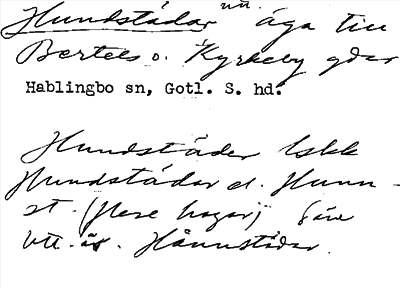 Hundstädar nu. äga till
Bertels o. Kyrkeby gdar
Hablingbo sn, Gotl. S. hd.
Hundstäder Iskk
Hundstädar el. Hunn-
st. (flere hagar)
utt. Hånnstädar.